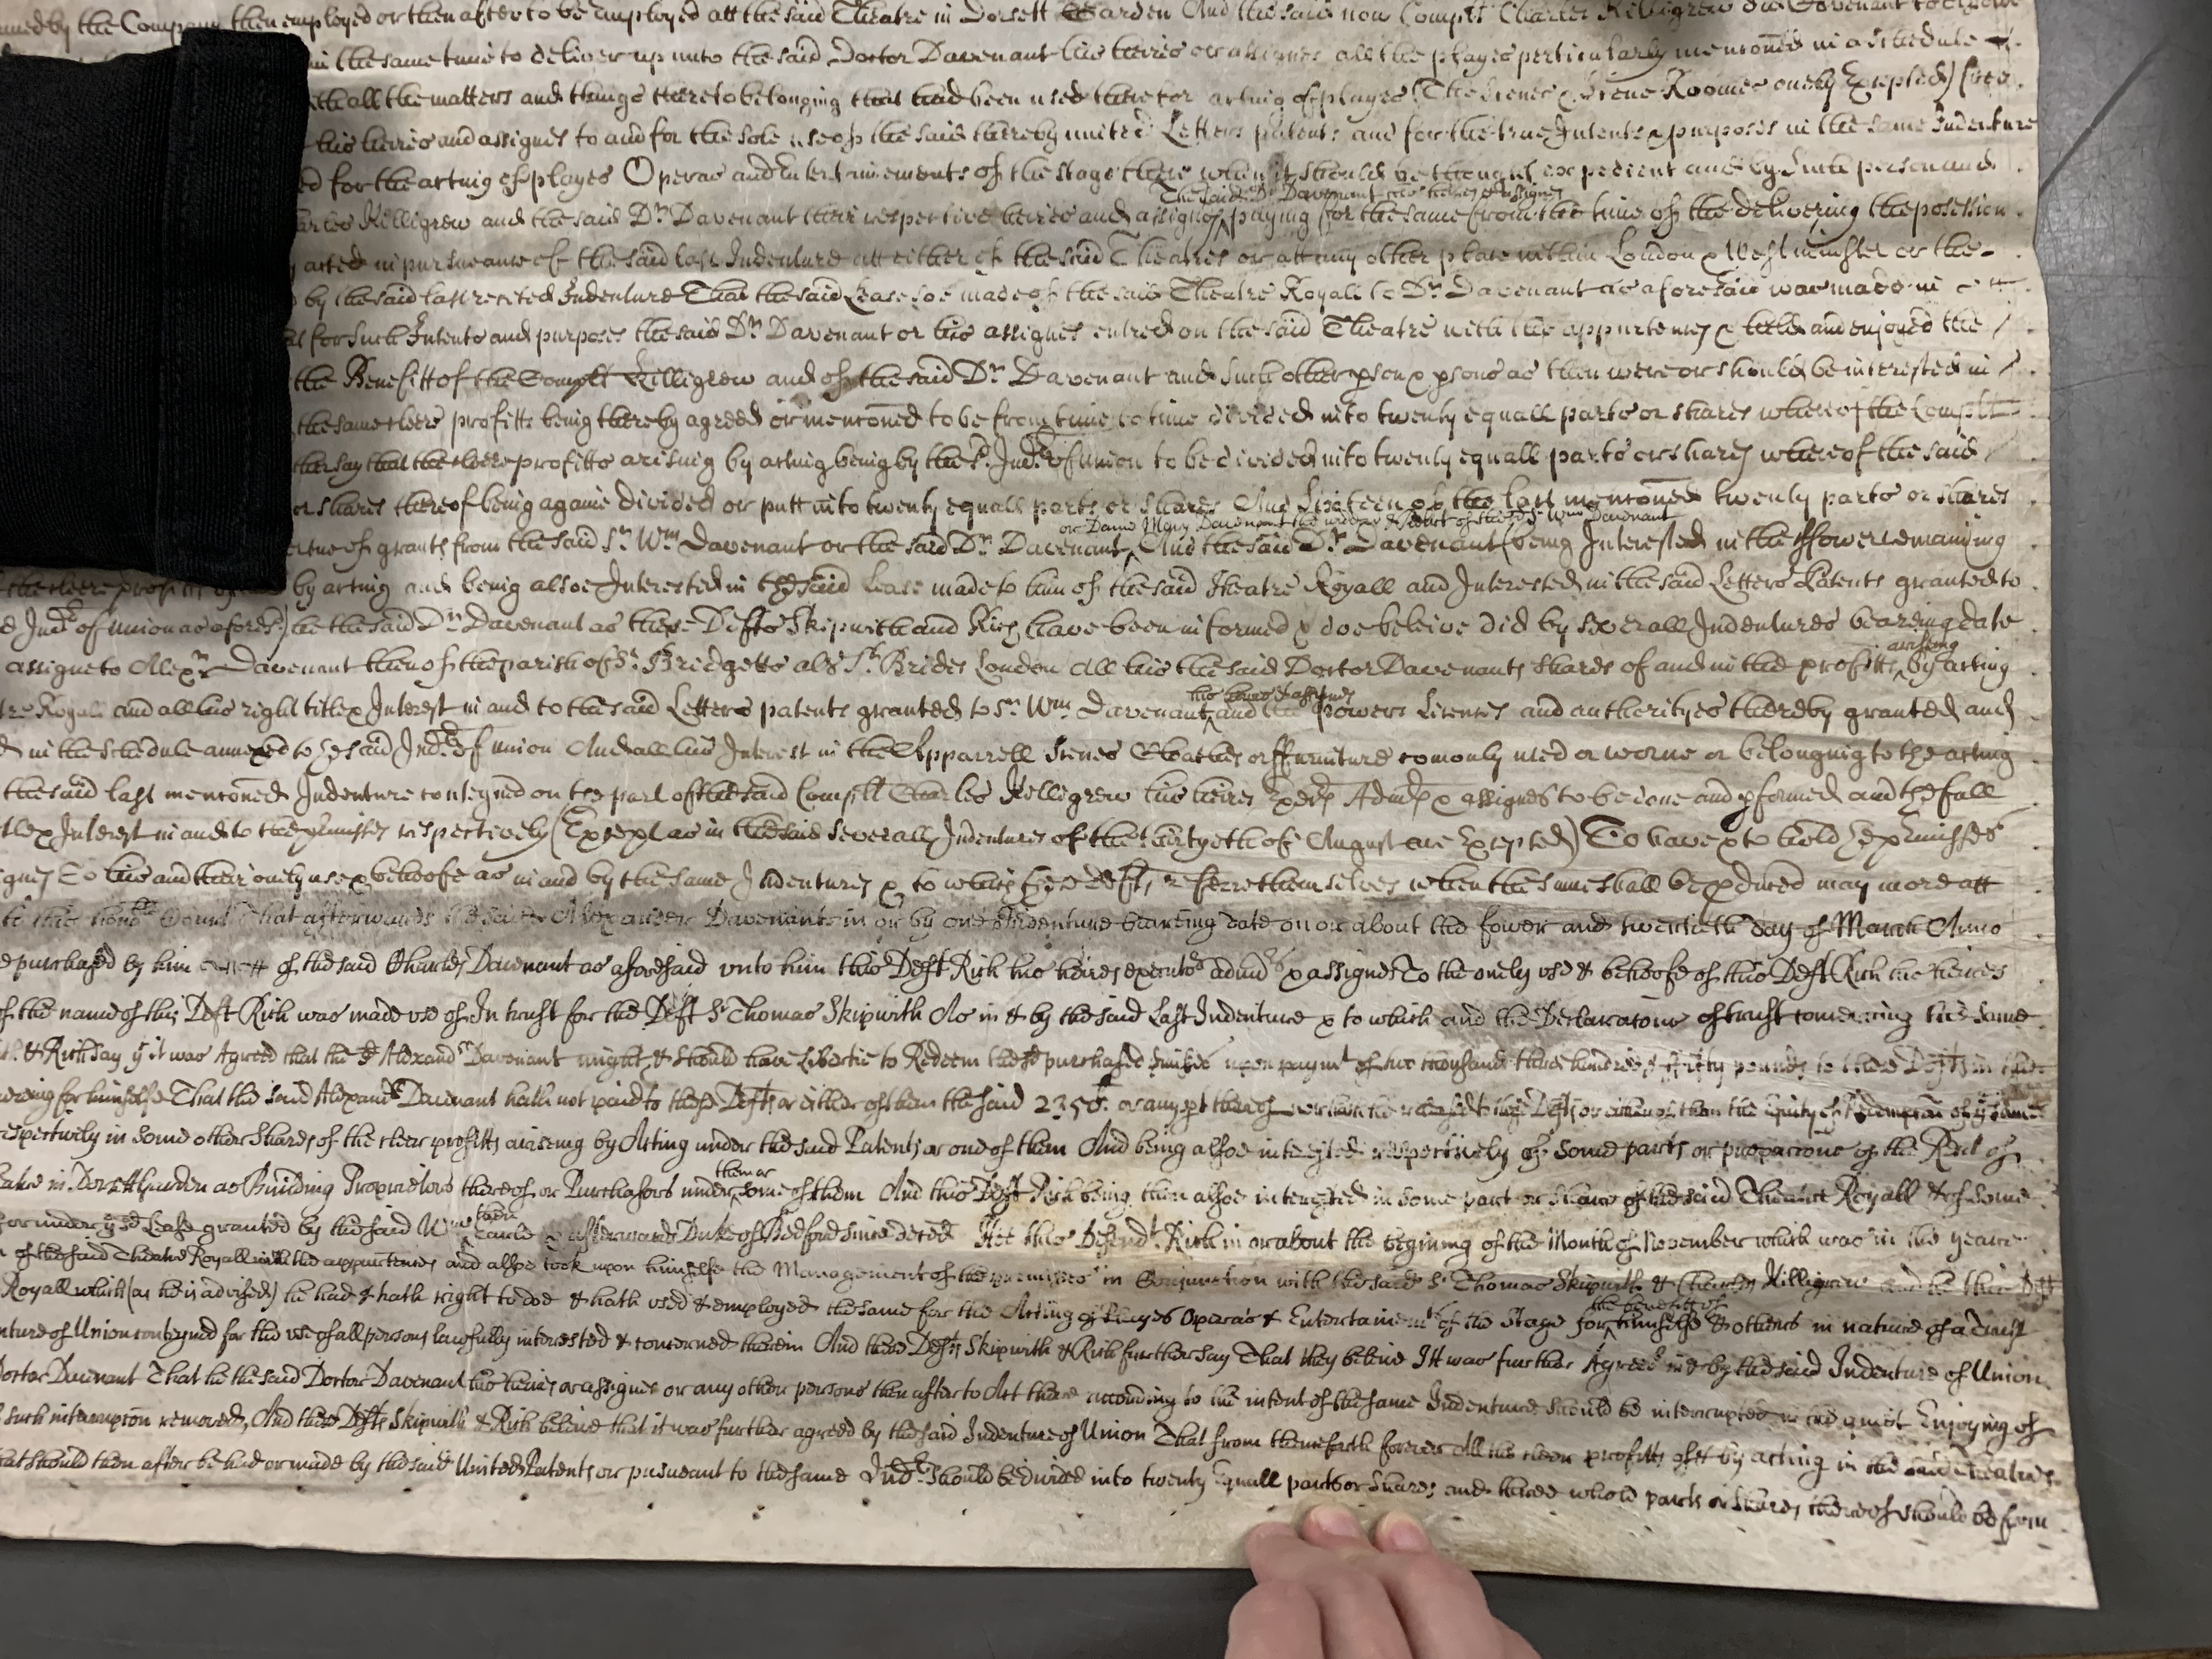 by the Company then employed or then after to be employed att the said Theatre in Dorsett Garden And the said now Complt Charles Killigrew did Covenant to
in the same time to deliver up unto the said Doctor Davenant his heires or assignes all the playes perticularly menconed in a schedule
all the matters and things thereto belonging that had been used there for acting of playes (The scenes & scene Roomes onely Excepted) free
his heires and assignes to and for the sole use of the said thereby united Letters patents and for the true Intents & purposes in the same Indenture
for the acting of playes Operas and Entertainements of the stage there when it should be thought expedient and by such person and
The said Dr. Davenant his heires & assignes
Killigrew and the said Dr. Davenant their respective heires and assignes ^ paying for the same from the time of the delivering the possession
acted in pursueance of the said last Indenture att either of the said Theatres or att any other place within London & Westminster or the
by the said last recited Indenture That the said Lease soe made of the said Theatre Royall to Dr. Davenant as aforesaid was made in
for such Intents and purposes the said Dr. Davenant or his assignes entred on the said Theatre with the appurtences & held and enjoyed the
the Benefitt of the Complt Killigrew and of the said Dr. Davenant and such other pson & psons as then were or should be interested in
the same cleere profitts being thereby agreed or menconed to be from time to time divided into twenty equall parts or shares whereof the Complt
say that the cleere profitts arising by acting being by the sd. Indre of union to be divided into twenty equall parts or shares whereof the said
or shares thereof being againe divided or putt into twenty equall parts or shares And Sixteen of the last menconed twenty parts or shares
or Dame Mary Davenant the widdow & relict of the sd Sr Wm Davenant
of grants from the said Sr. Wm Davenant or the said Dr. Davenant ^ And the said Dr. Davenant (being Interested in the ffower remaining
the cleere profitts by acting and being alsoe Interested in the said Lease made to him of the said Theatre Royall and Interested in the said Letters Patents granted to
Indre of Union as aforesd) he the said Dr. Davenant as these Defts Skipwith and Rich have been informed & doe beleive did by severall Indentures bearing date
arising
assigne to Alexr Davenant then of the parish of St. Bridgetts als St. Brides London All his the said Doctor Davenants shares of and in the profitts ^ by acting
his heires & assignes
Royall and all his right title & Interest in and to the said Letters patents granted to Sr. Wm Davenant ^ and the powers Licenses and authorityes thereby granted and
in the schedule annexed to the said Indre of union And all his Interest in the Apparrell Scenes Cloathes or ffurniture comonly used or worne or belonging to the acting
the said last menconed Indenture conteyned on the part of the said Complt Charles Killigrew his heires Exers Admrs & assignes to be done and pformed and the full
Interest in and to the pmisses respectively (Except as in the said severall Indentures of the thirtyeth of August are Excepted) To have & to hold the pmisses
To his and their onely use & behoofe as in and by the same Indentures & to which these Defts referre themselves when the same shall be pduced may more att
to this honble Court That afterwards the said Alexander Davenant in or by one Indenture bearing date on or about the fower and twentieth day of March Anno
purchased by him of the said Charles Davenant as aforesaid unto him this Deft Rich his heires executors admrs & assignes To the onely use & behoofe of this Deft Rich his heires
of the name of this Deft Rich was made use of In trust for the Deft Sr Thomas Skipwith As in & by the said Last Indenture & to which and the Declaracons of trust concerning the same
& Rich say yt it was Agreed that the sd Alexandr Davenant might & should have Libertie to Redeem the sd purchased pmisses upon paymt of two thousand three hundred & fifty pounds to these Defts in
for himselfe That the said Alexandr Davenant hath not paid to these Defts or either of them the said 2350l. or any pt thereof to these Defts or either of them the Equity of Redempcon of ye same
respectively in some other Shares of the cleer profitts ariseing by Acting under the said Patents or one of them And being alsoe interested respectively of some parts or proporcons of the Rent of
them or
in Dorsett Garden as Building Proprietors thereof or Purchasors under ^ some of them And this Deft Rich being then alsoe interested in some part or share of the said Theatre Royall & of some
then
or under ye sd Lease granted by the said Wm ^ Earle & afterwards Duke of Bedford since deced Hee this Defendt Rich in or about the begining of the Month of November which was in the yeare
of the said Theatre Royall with the appurtences and alsoe took upon himselfe the Management of the premisses in Conjunction with the said Sr Thomas Skipwith & Charles Killigrew and he this Deft
Royall which (as he is advised) he had & hath right to doe & hath used & employed the same for the Acting of Playes Operas & Entertainemts of the Stage
the benefitt of
for ^ himselfe & others in nature of a Trust
of Union conteyned for the use of all persons lawfully interested & concerned therein And these Defts Skipwith & Rich further say That they beleive It was further Agreed in & by the said Indenture of Union
Doctor Davenant That he the said Doctor Davenant his heires or assignes or any other persons then after to Act there according to the intent of the same Indenture should be interrupted in the quiet Enjoying of
such interrupcon removed, And these Defts Skipwith & Rich beleive that it was further agreed by the said Indenture of Union That from thenceforth forever All the cleer profitts by acting in the said Theatres
that should then after be had or made by the said United Patents or pursueant to the same Indre should be divided into twenty Equall parts or Shares and three whole parts or Shares thereof should be from